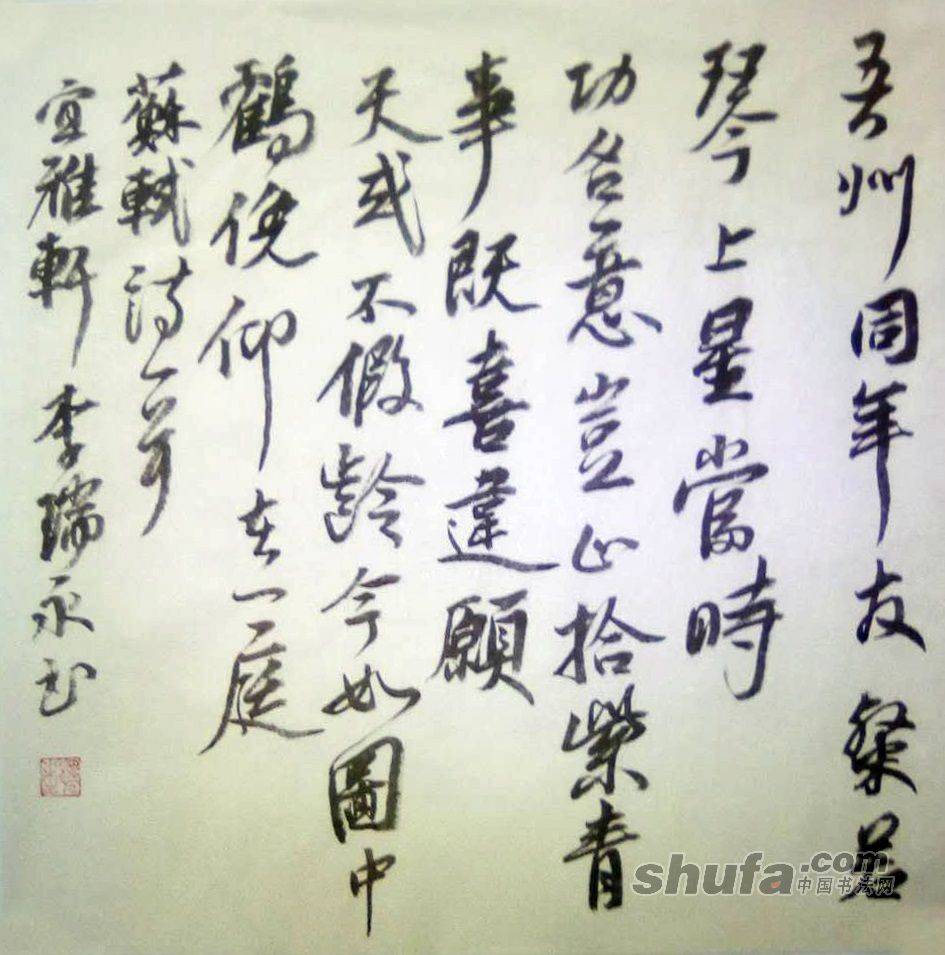 吾州同年友粲若
琴上星當時
功名意豈止拾紫青
事既喜違願
天或不假齡今如圖中
鶴俛仰在一庭
蘇軾詩一首
宜雅軒 李瑞永書
shufa.com
中国书法网